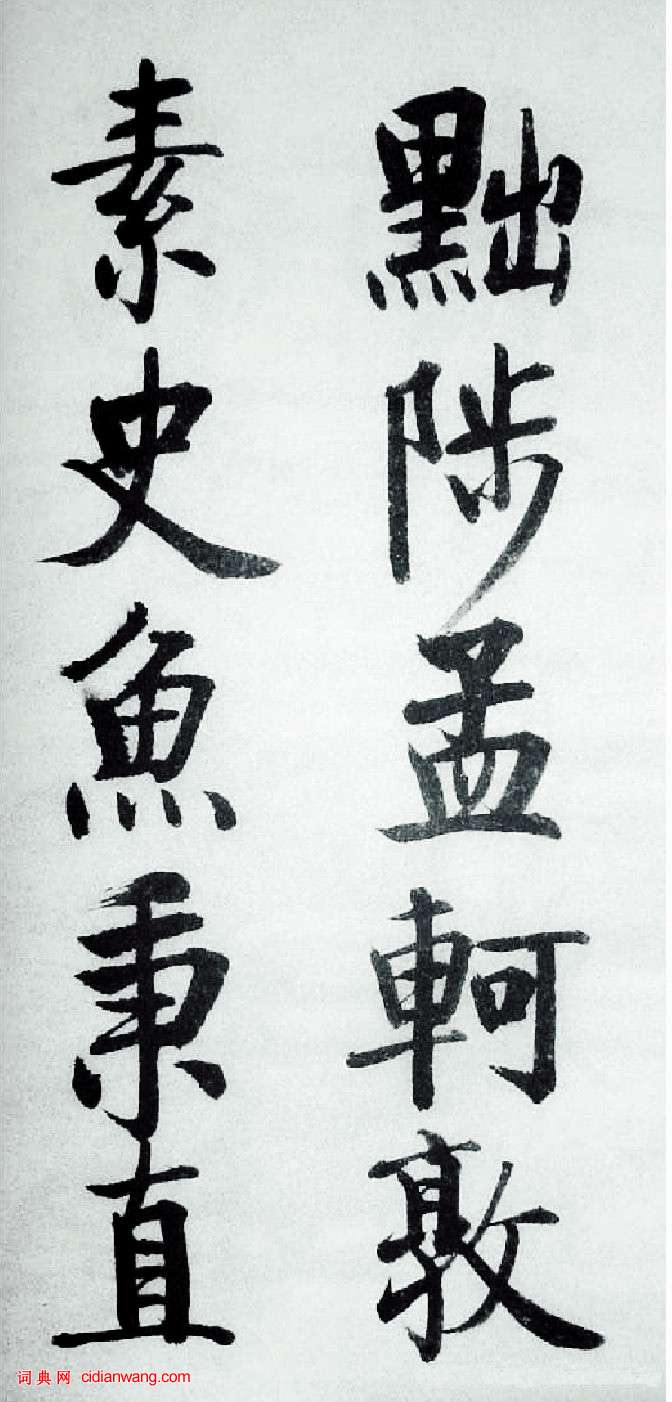 黜陟孟軻敦
素史魚秉直
词典网 cidianwang.com